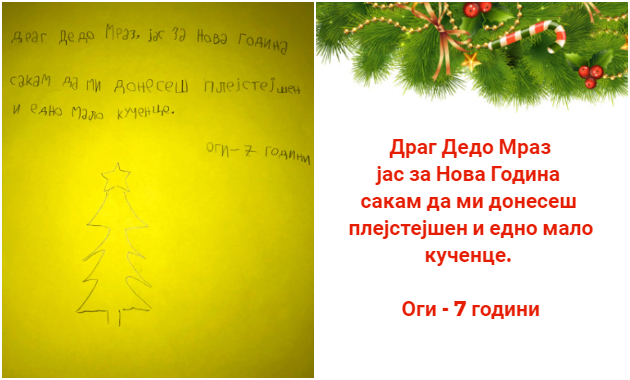 Драг Дедо Мраз, јас за Нова Година
сакам да ми донесеш плејстејшен
и едно мало кученце.
Оги - 7 години
Драг Дедо Мраз
јас за Нова Година
сакам да ми донесеш
плејстејшен и едно мало
кученце.
Оги - 7 години